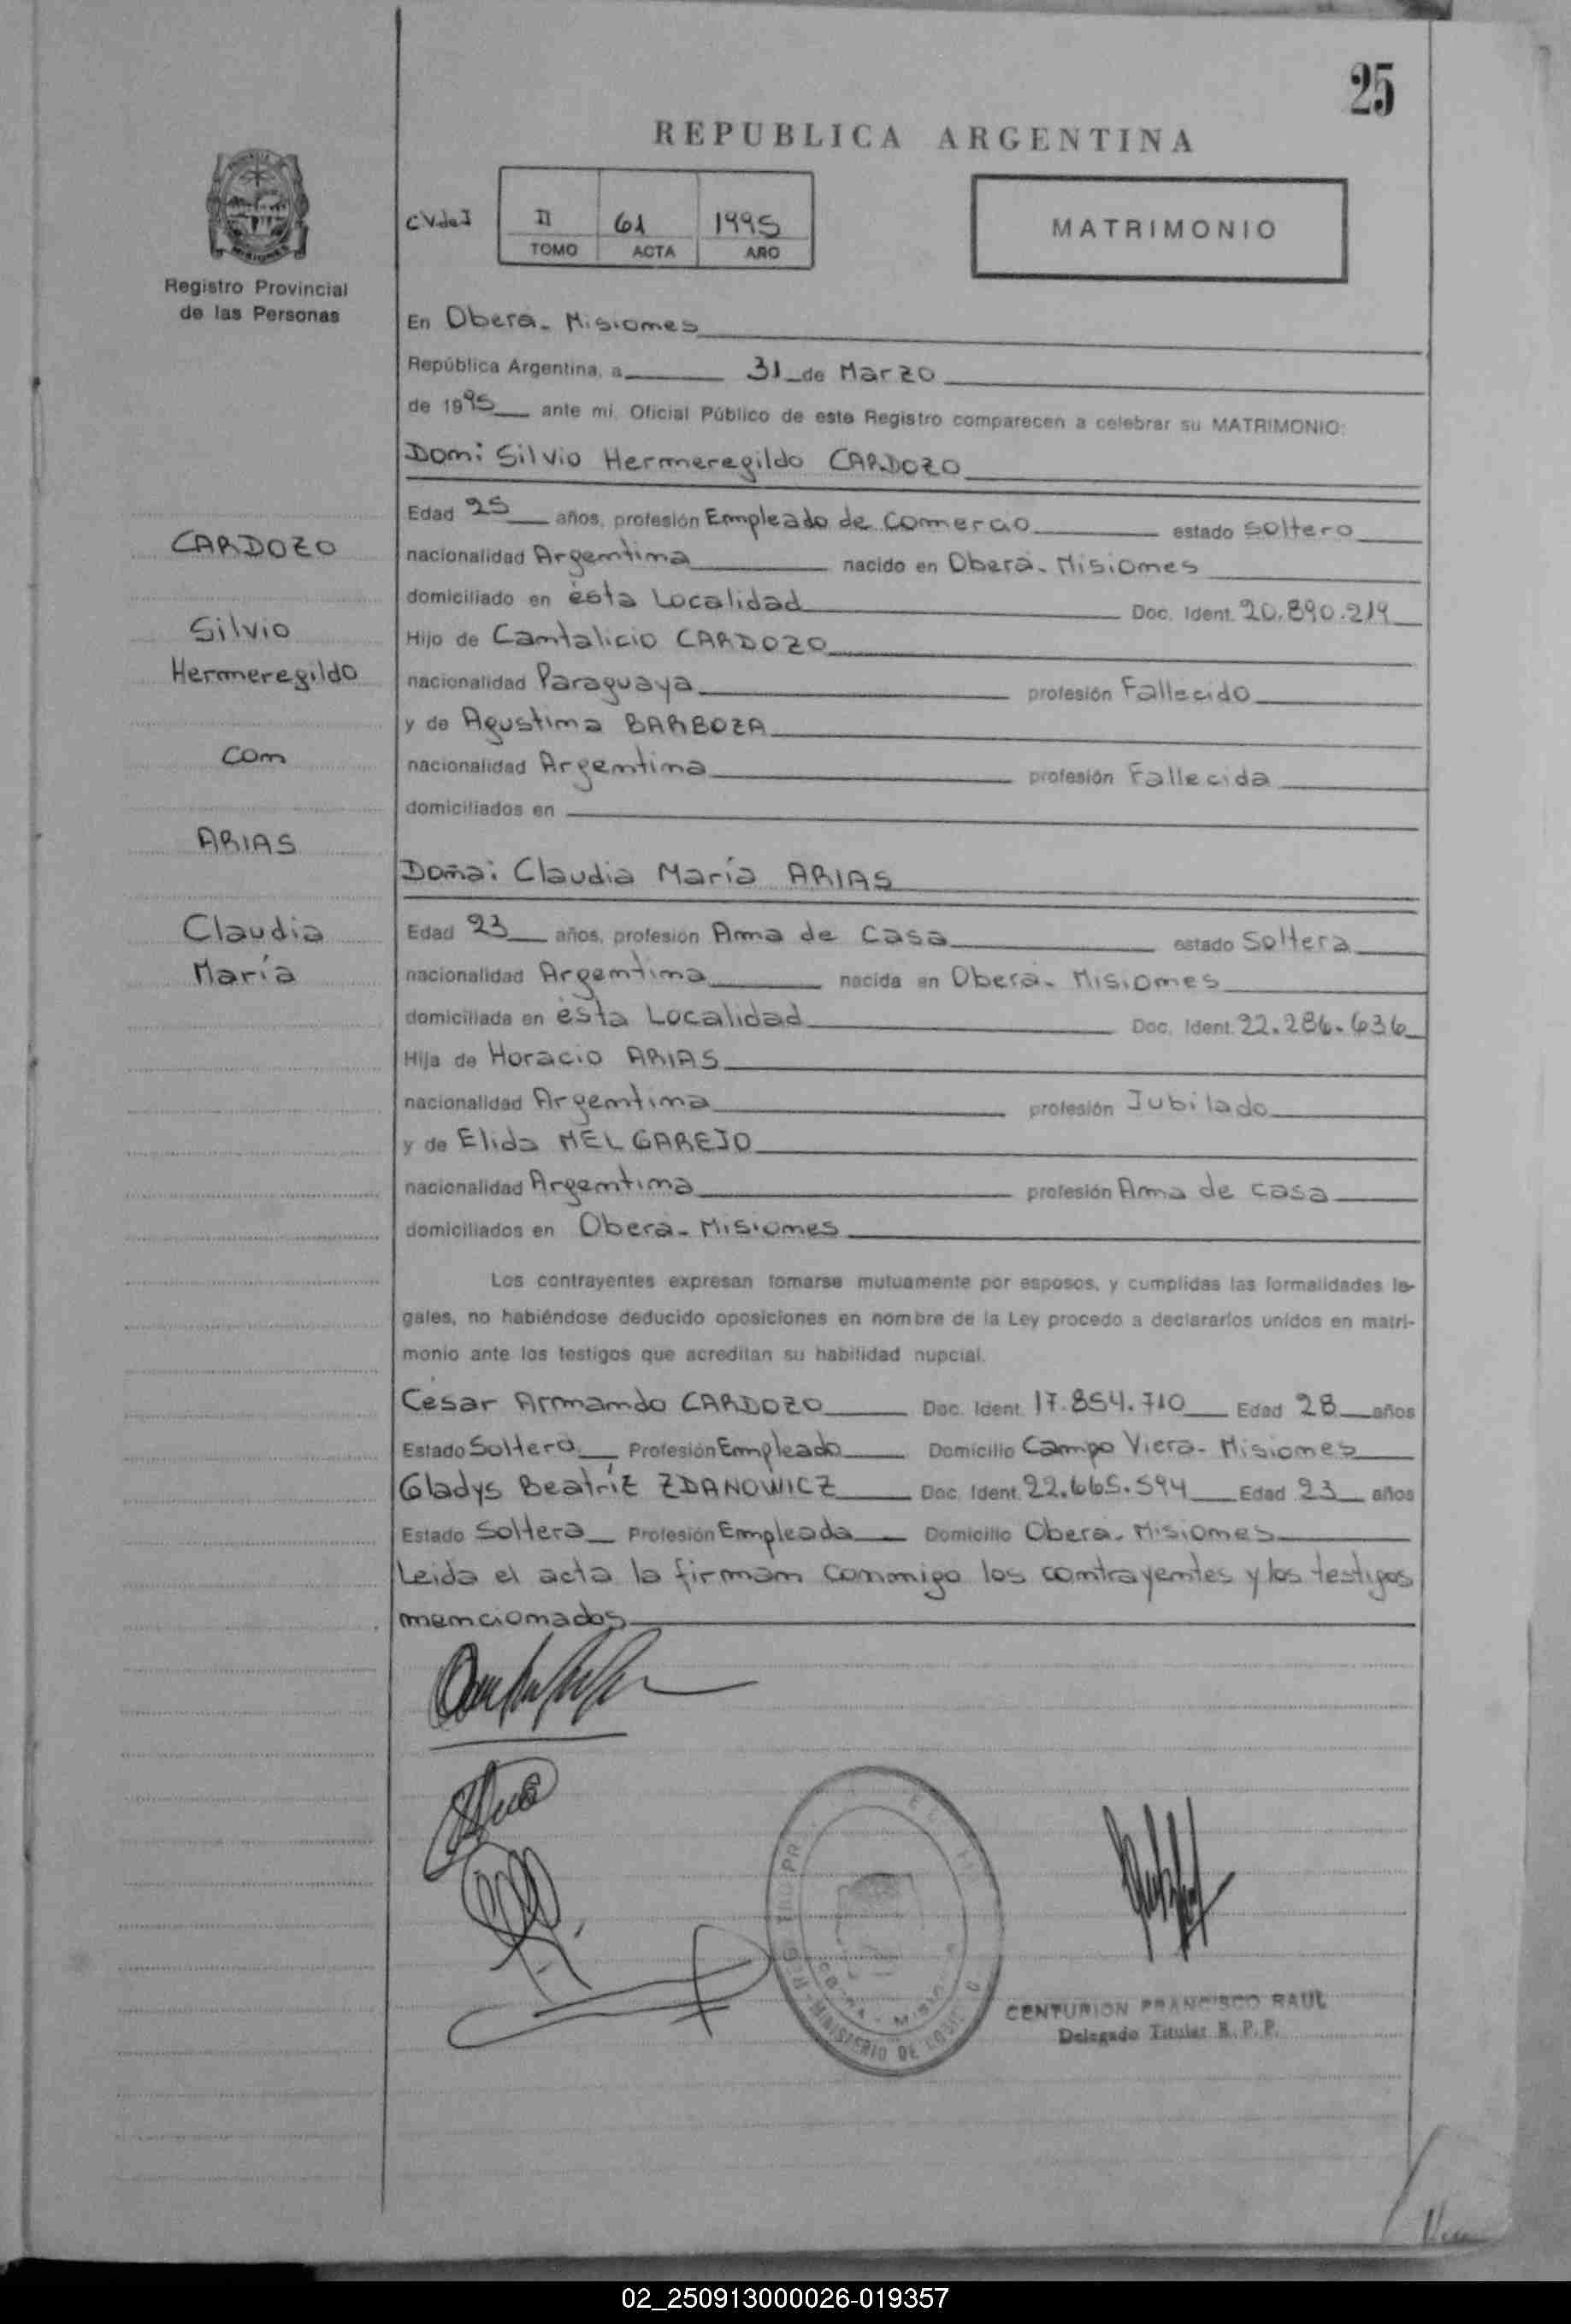 25
REPUBLICA ARGENTINA
CVdeI
II 61 1995
TOMO ACTA AÑO
MATRIMONIO
Registro Provincial
de las Personas
En Oberá - Misiones
República Argentina, a 31 de Marzo
de 1995 ante mí, Oficial Público de este Registro comparecen a celebrar su MATRIMONIO:
Don: Silvio Hermeregildo CARDOZO
Edad 25 años, profesión Empleado de Comercio estado Soltero
nacionalidad Argentina nacido en Oberá - Misiones
domiciliado en ésta Localidad Doc. Ident. 20.890.219
Hijo de Cantalicio CARDOZO
nacionalidad Paraguaya profesión Fallecido
y de Agustina BARBOZA
nacionalidad Argentina profesión Fallecida
domiciliados en
Doña: Claudia María ARIAS
Edad 23 años, profesión Ama de Casa estado Soltera
nacionalidad Argentina nacida en Oberá - Misiones
domiciliada en ésta Localidad Doc. Ident. 22.286.636
Hija de Horacio ARIAS
nacionalidad Argentina profesión Jubilado
y de Elida MELGAREJO
nacionalidad Argentina profesión Ama de casa
domiciliados en Oberá - Misiones
CARDOZO
Silvio
Hermeregildo
Con
ARIAS
Claudia
María
Los contrayentes expresan tomarse mutuamente por esposos, y cumplidas las formalidades le-
gales, no habiéndose deducido oposiciones en nombre de la Ley procedo a declararlos unidos en matri-
monio ante los testigos que acreditan su habilidad nupcial.
César Armando CARDOZO Doc. Ident. 17.854.710 Edad 28 años
Estado Soltero Profesión Empleado Domicilio Campo Viera - Misiones
Gladys Beatríz ZDANOWICZ Doc. Ident. 22.665.594 Edad 23 años
Estado Soltera Profesión Empleada Domicilio Oberá - Misiones
Leida el acta la firman conmigo los contrayentes y los testigos
mencionados
MINISTERIO DE
CENTURION FRANCISCO RAUL
Delegado Titular R. P. P.
02_250913000026-019357